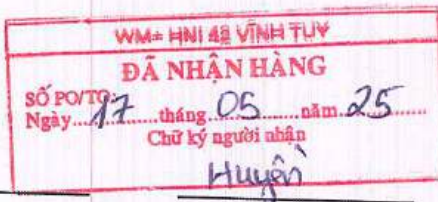 WM+ HNI 42 VĨNH TUY
ĐÃ NHẬN HÀNG
SỐ PO/TO:
Ngày 17 tháng 05 năm 25
Chữ ký người nhận
Huyền